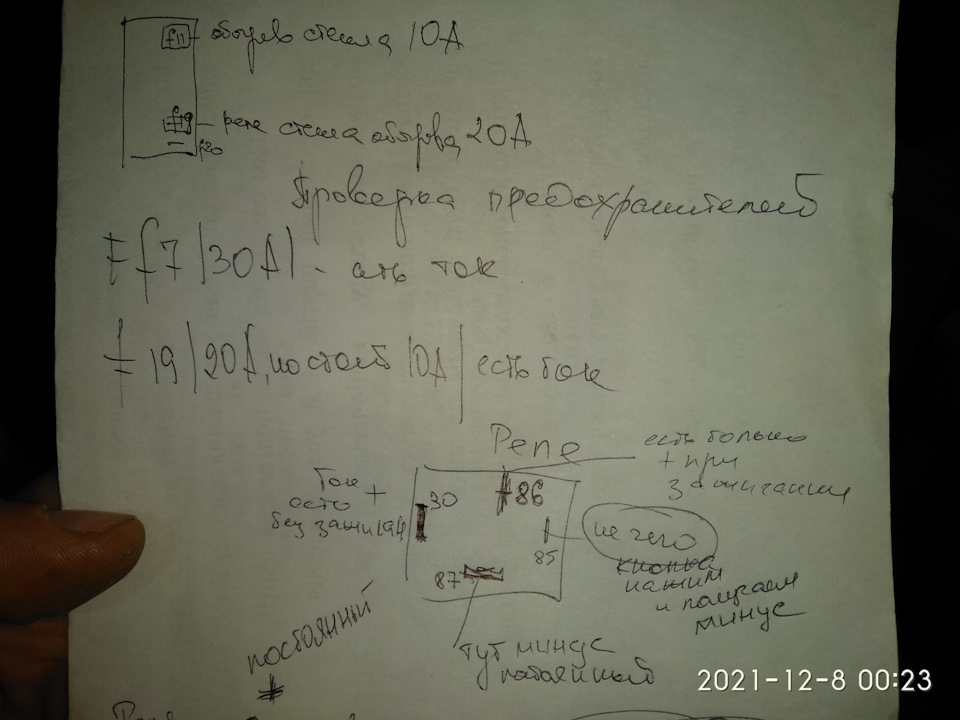 f11 - обогрев стекла 10А
f19 - реле стекла обогрева 20А
f20
Проверка предохранителей
f7 |30А| -  ток
f 19 |20А, 10А| есть ток
Реле
есть только
+ при
зажигании
Ток
есть +
без зажиган
30
+86
85
87
не чего
кнопка
нажим
и получаем
минус
постоянный
тут минус
2021-12-8 00:23